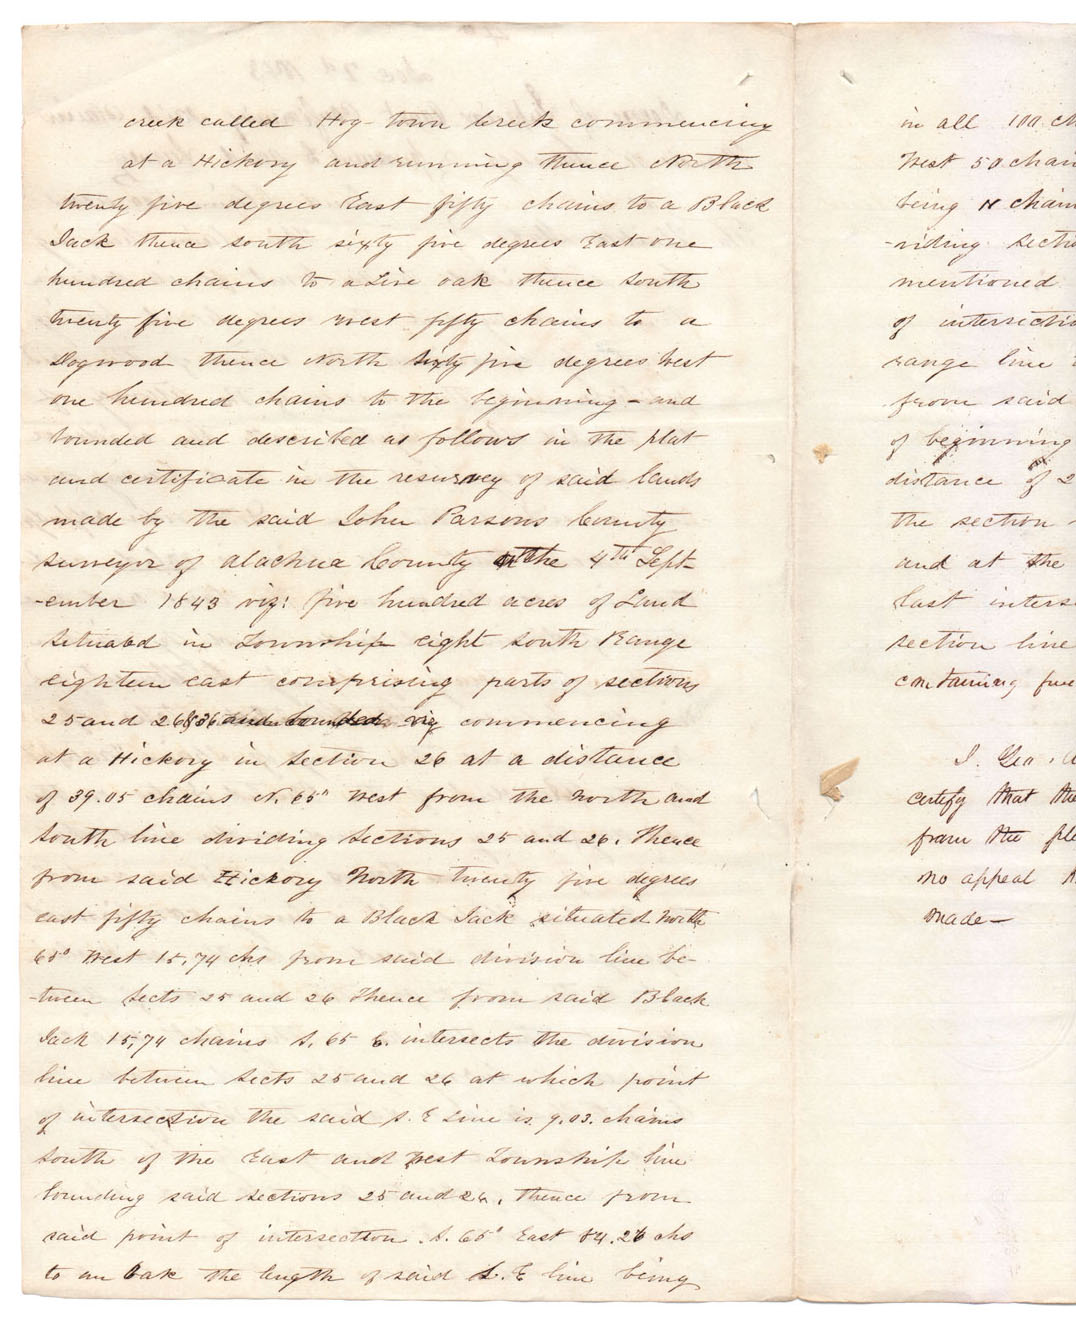 creek called Hog-town Creek commencing
at a Hickory and running thence North
twenty five degrees East fifty chains to a Black
Jack thence south sixty five degrees East one
hundred chains to a Live oak thence South
twenty five degrees west fifty chains to a
Dogwood thence North Sixty five degrees West
one hundred chains to the beginning - and
bounded and described as follows in the plat
and certificate in the resurvey of said lands
made by the said John Parsons County
surveyor of Alachua County the 4th Sept-
-ember 1843 viz: five hundred acres of Land
situated in Township eight south Range
eighteen east comprising parts of sections
25 and 26 & 36 and bounded viz commencing
at a Hickory in Section 26 at a distance
of 39.05 chains N. 65° West from the North and
South line dividing Sections 25 and 26. Thence
from said Hickory North twenty five degrees
east fifty chains to a Black Jack situated North
65° West 15,74 chs from said division line be-
-tween Sects 25 and 26 Thence from said Black
Jack 15,74 chains S. 65 E. intersects the division
line between Sects 25 and 26 at which point
of intersection the said S. E Line is 9.03. chains
South of the East and West Township line
bounding said Sections 25 and 26, thence from
said point of intersection S. 65° East 84.26 chs
to an Oak the length of said S. E line being
in all 100 ch
West 50 chain
being chain
-viding secti
mentioned
of intersectio
range line
from said
of beginning
distance of 2
the section
and at the
last inters
section line
containing five
I. Geo.
certify that the
from the file
no appeal
made —